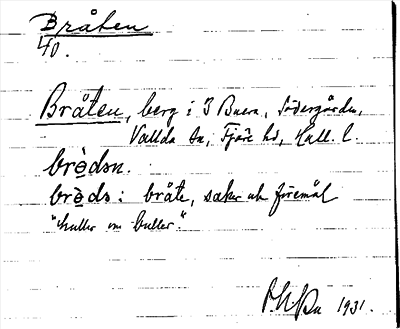 Bråten
40.
Bråten, berg i 3 Buera, Södergården,
Vallda sn, Fjäre hd, Hall. l.
brèdsn.
brèds: bråte, saker och föremål
"huller om buller".
1931.